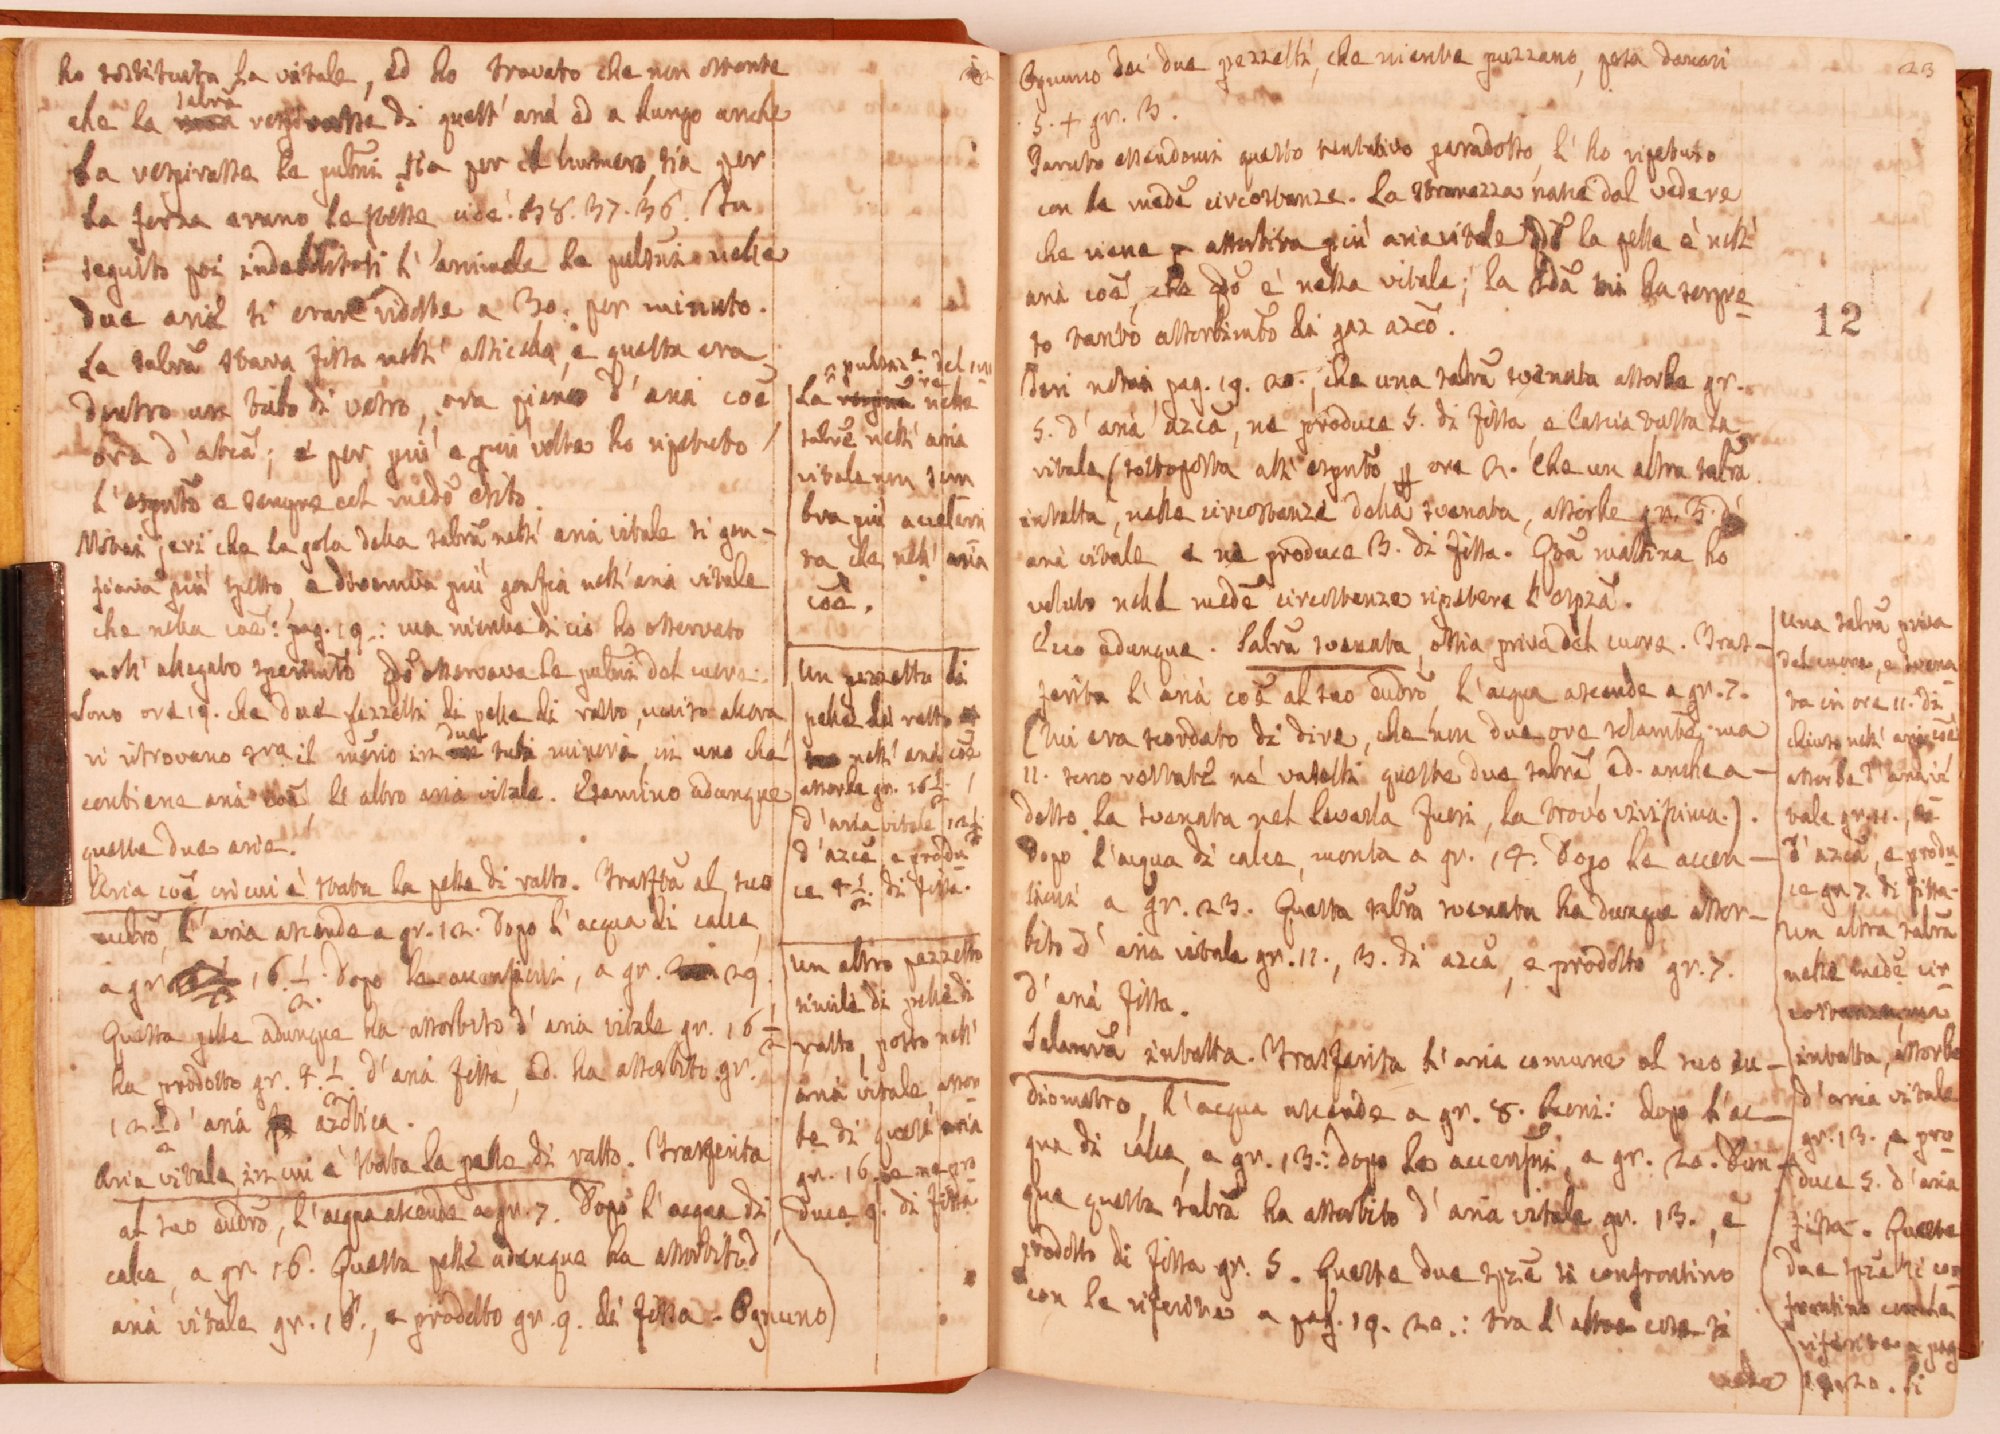 ho sostituita la vitale, ed ho trovato che non ostante
che la salrã di quest' aria ed a lungo anche
la respirasse le pulsni sia per il numero, sia per
la forza erano le stesse cioè. 38. 37. 36. In
seguito poi indebolitosi l' animale le pulsni nelle
due arie si erano ridotte a 30. per minuto.
La salrã stava fissa nell' assicella, e questa era
dentro un tubo di vetro, ora pieno d' aria coẽ
ora d' ; e per più e più volte ho ripetuto
l' espmto e sempre col medo esito.
Notai jeri che la gola della salrã nell' aria vitale si gon-
fiava più spesso, e diveniva più gonfia nell' aria vitale
che nella coẽ: pag. 19.: ma niente di ciò ho osservato
nell' allegato sperimto qdo osservava le pulsni del cuore.
Sono ore 19. che due pezzetti di pelle di ratto, ucciso allora
si ritrovano sra il mẽrio in due tubi minori, in uno che
contiene aria coẽ l' altro aria vitale. Esamino adunque
queste due arie.
Aria coẽ in cui è stata la pelle di ratto. Trasfta al suo
eudro, l' aria ascende a gr. 12. Dopo l' acqua di calce,
a gr. 16. 1/2. Dopo le accensioni, a gr. 29.
Questa pelle adunque ha assorbito d' aria vitale gr. 16 1/2
ha prodotto gr. 4. 1/2. d' aria fissa, ed ha assorbito gr.
12. 1/2 d' aria azotica.
Aria vitale in cui è stata la pelle di ratto. Trasferita
al suo eudro, l' acqua ascende a gr. 7. Dopo l' acqua di
calce, a gr. 16. Questa pelle adunque ha assorbito d'
aria vitale gr. 16., e prodotto gr. 9. di fissa. Ognuno
pulsne del cuore
La nelle
salrẽ nell' aria
vitale non sem
bra più accelera
ta che nell' aria
coẽ.
Un pezzetto di
pelle di ratto
nell' aria coẽ
assorbe gr. 16 1/2.
d' aria vitale, 12 1/2.
d' azcã, e produ
ce 4 1/2. di fissa.
Un altro pezzetto
simile di pelle di
ratto, posto nell'
aria vitale, assor
be di quest' aria
gr. 16. e ne pro
duce 9. di fissa.
23
Ognuno dei due pezzetti, che niente puzzano, pesa danari
5. + gr. 3.
Paruto essendomi questo tentativo paradosso, l' ho ripetuto
con le medẽ circostanze. La stranezza nasce dal vedere
che viene assorbita più aria vitale qdo la pelle è nell'
aria coẽ, che qdo è nella vitale; la 2da sia ha sempre
to tanto assorbimto di gaz azco.
12
Jeri notai pag. 19. 20., che una salrã svenata assorbe gr.
5. d' aria azcã, ne produce 5. di fissa, e lascia tutta la
vitale (sottoposta all' espmto p ore 2. Che un altra salrã
intatta, nelle circostanze della svenata, assorbe gr. 3. d'
aria vitale e ne produce 3. di fissa. Qta mattina ho
voluto nelle medẽ circostanze ripetere l' espzã.
Ecco adunque. Salrã svenata, ossia priva del cuore. Tras-
ferita l' aria coẽ al suo eudro, l' acqua ascende a gr. 7.
(mi era scordato di dire, che non due ore solamte, ma
11. sono restate ne' vaselli queste due salrẽ, ed anche a-
desso la svenata nel levarla fuori, la trovo vivissima.).
Dopo l' acqua di calce, monta a gr. 14. Dopo le accen-
sioni a gr. 23. Questa salrã svenata ha dunque assor-
bito d' aria vitale gr. 11., 3. di azcã, e prodotto gr. 7.
d' aria fissa.
Salamrã intatta. Trasferita l' aria comune al suo eu-
diometro, l' acqua ascende a gr. 8. beni: dopo l' ac-
qua di calce, a gr. 13.: dopo le accensni, a gr. 20. Dun-
que questa salrã ha assorbito d' aria vitale gr. 13., e
prodotto di fissa gr. 5. Queste due spzẽ si confrontino
con le riferite a pag. 19. 20.: tra l' altre cose si
vede
Una salrã priva
del cuore, e svena
ta in ore 11. di
chiuso nell' aria coẽ
assorbe d' aria vi
tale gr. 11., 3.
d' azcã, e produ
ce gr. 7. di fissa.
Un altra salrã
nelle medẽ cir
costanze, ma
intatta, assorbe
d' aria vitale
gr. 13., e pro
duce 5. d' aria
fissa. Queste
due spzẽ si con
frontino con le
riferite a pag
19. 20. Si